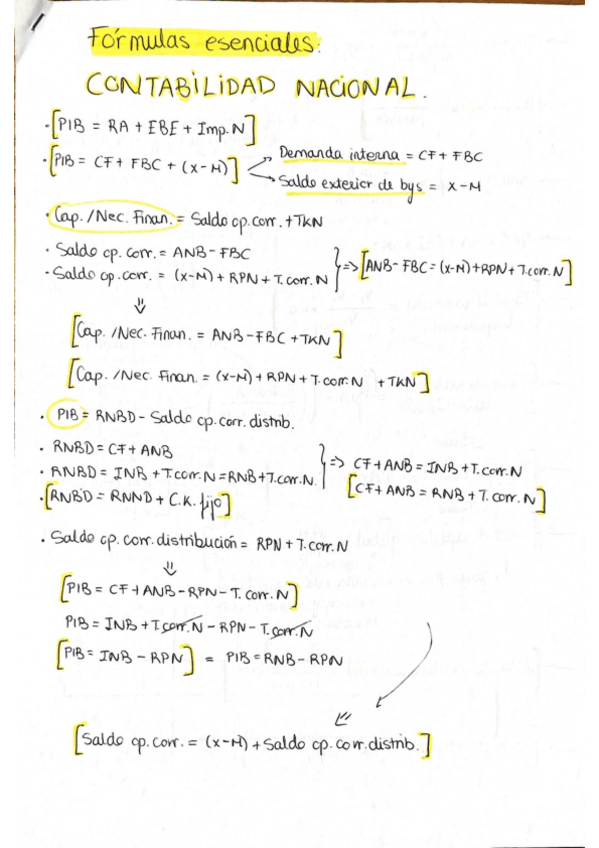 Fórmulas esenciales:
CONTABILIDAD NACIONAL.
· [PIB = RA + EBE + Imp.N]
· [PIB = CF + FBC + (X-M)] → Demanda interna = CF + FBC
→ Saldo exterior de bys = X-M
· Cap./Nec. Finan. = Saldo op. corr. + TKN
· Saldo op. corr. = ANB - FBC
· Saldo op. corr. = (X-M) + RPN + T. corr. N } => [ANB - FBC = (X-M) + RPN + T.corr. N]
⇓
[Cap. /Nec. Finan. = ANB - FBC + TKN]
[Cap. /Nec. Finan. = (X-M) + RPN + T. corr. N + TKN]
· PIB = RNBD - Saldo op. corr. distrib.
· RNBD = CF + ANB
· RNBD = INB + T.corr. N = RNB + T.corr. N. } => CF + ANB = INB + T.corr. N
· [RNBD = RNND + C.K. fijo] [CF + ANB = RNB + T. corr. N]
· Saldo op. corr. distribución = RPN + T. corr. N
⇓
[PIB = CF + ANB - RPN - T. corr. N]
PIB = INB + T.corr. N - RPN - T. corr. N
[PIB = INB - RPN] = PIB = RNB - RPN
⇙
[Saldo op. corr. = (X-M) + Saldo op. corr. distrib.]